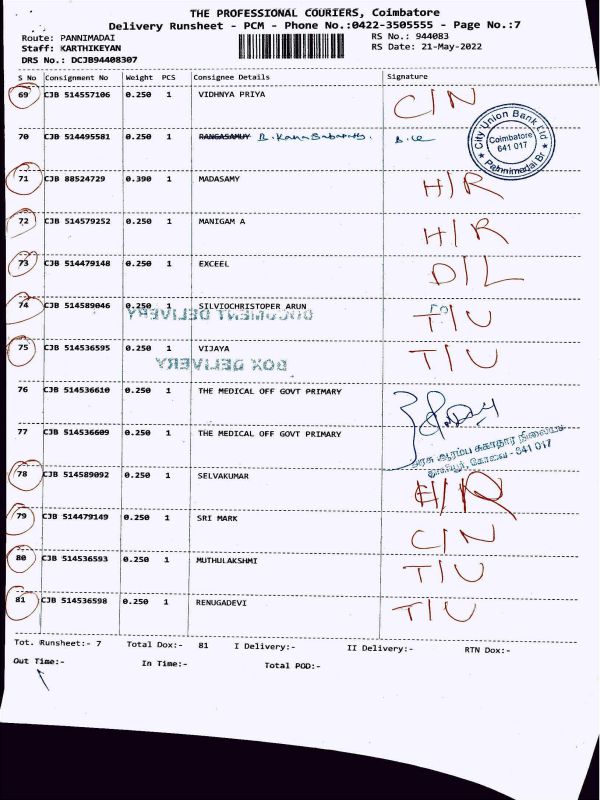 THE PROFESSIONAL COURIERS, Coimbatore
Delivery Runsheet - PCM - Phone No.:0422-3505555 - Page No.:7
Route: PANNIMADAI RS No.: 944083
Staff: KARTHIKEYAN RS Date: 21-May-2022
DRS No.: DCJB94408307
S No Consignment No Weight PCS Consignee Details Signature
69 CJB 514557106 0.250 1 VIDHNYA PRIYA C/N
City Union Bank Ltd
Coimbatore
641 017
Pannimadai Br
70 CJB 514495581 0.250 1 RANGASAMUY
71 CJB 88524729 0.390 1 MADASAMY H/R
72 CJB 514579252 0.250 1 MANIGAM A H/R
73 CJB 514479148 0.250 1 EXCEEL D/L
74 CJB 514589046 0.250 1 SILVIOCHRISTOPER ARUN T/U
DOCUMENT DELIVERY
75 CJB 514536595 0.250 1 VIJAYA T/U
BOX DELIVERY
76 CJB 514536610 0.250 1 THE MEDICAL OFF GOVT PRIMARY
77 CJB 514536609 0.250 1 THE MEDICAL OFF GOVT PRIMARY
அரசு ஆரம்ப சுகாதார நிலையம்
கோவை - 641 017
78 CJB 514589092 0.250 1 SELVAKUMAR H/R
79 CJB 514479149 0.250 1 SRI MARK C/N
80 CJB 514536593 0.250 1 MUTHULAKSHMI T/U
81 CJB 514536598 0.250 1 RENUGADEVI T/U
Tot. Runsheet:- 7 Total Dox:- 81 I Delivery:- II Delivery:- RTN Dox:-
Out Time:- In Time:- Total POD:-